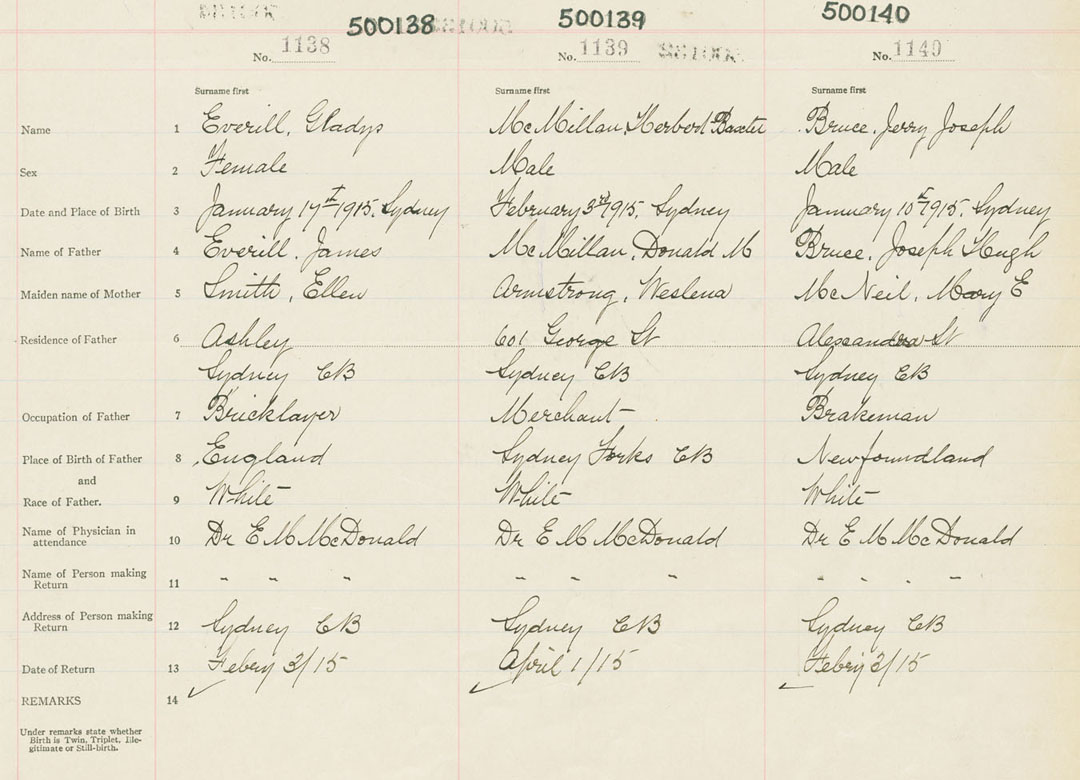 500138 500139 500140
No. 1138 No. 1139 No. 1140
Surname first Surname first Surname first
Name 1 Everill, Gladys McMillan, Herbert Baxter Bruce, Jerry Joseph
Sex 2 Female Male Male
Date and Place of Birth 3 January 17th 1915. Sydney February 3rd 1915. Sydney January 10th 1915. Sydney
Name of Father 4 Everill, James McMillan, Donald M Bruce, Joseph Hugh
Maiden name of Mother 5 Smith, Ellen Armstrong, Weslena McNeil, Mary E
Residence of Father 6 Ashley 601 George St Alexandra St
Sydney CB Sydney CB Sydney CB
Occupation of Father 7 Bricklayer Merchant Brakeman
Place of Birth of Father 8 England Sydney Forks CB Newfoundland
and
Race of Father. 9 White White White
Name of Physician in
attendance 10 Dr E M McDonald Dr E M McDonald Dr E M McDonald
Name of Person making
Return 11 " " " " " " " " " "
Address of Person making
Return 12 Sydney CB Sydney CB Sydney CB
Date of Return 13 Febry 3/15 April 1/15 Febry 3/15
REMARKS 14
Under remarks state whether
Birth is Twin, Triplet, Ille-
gitimate or Still-birth.